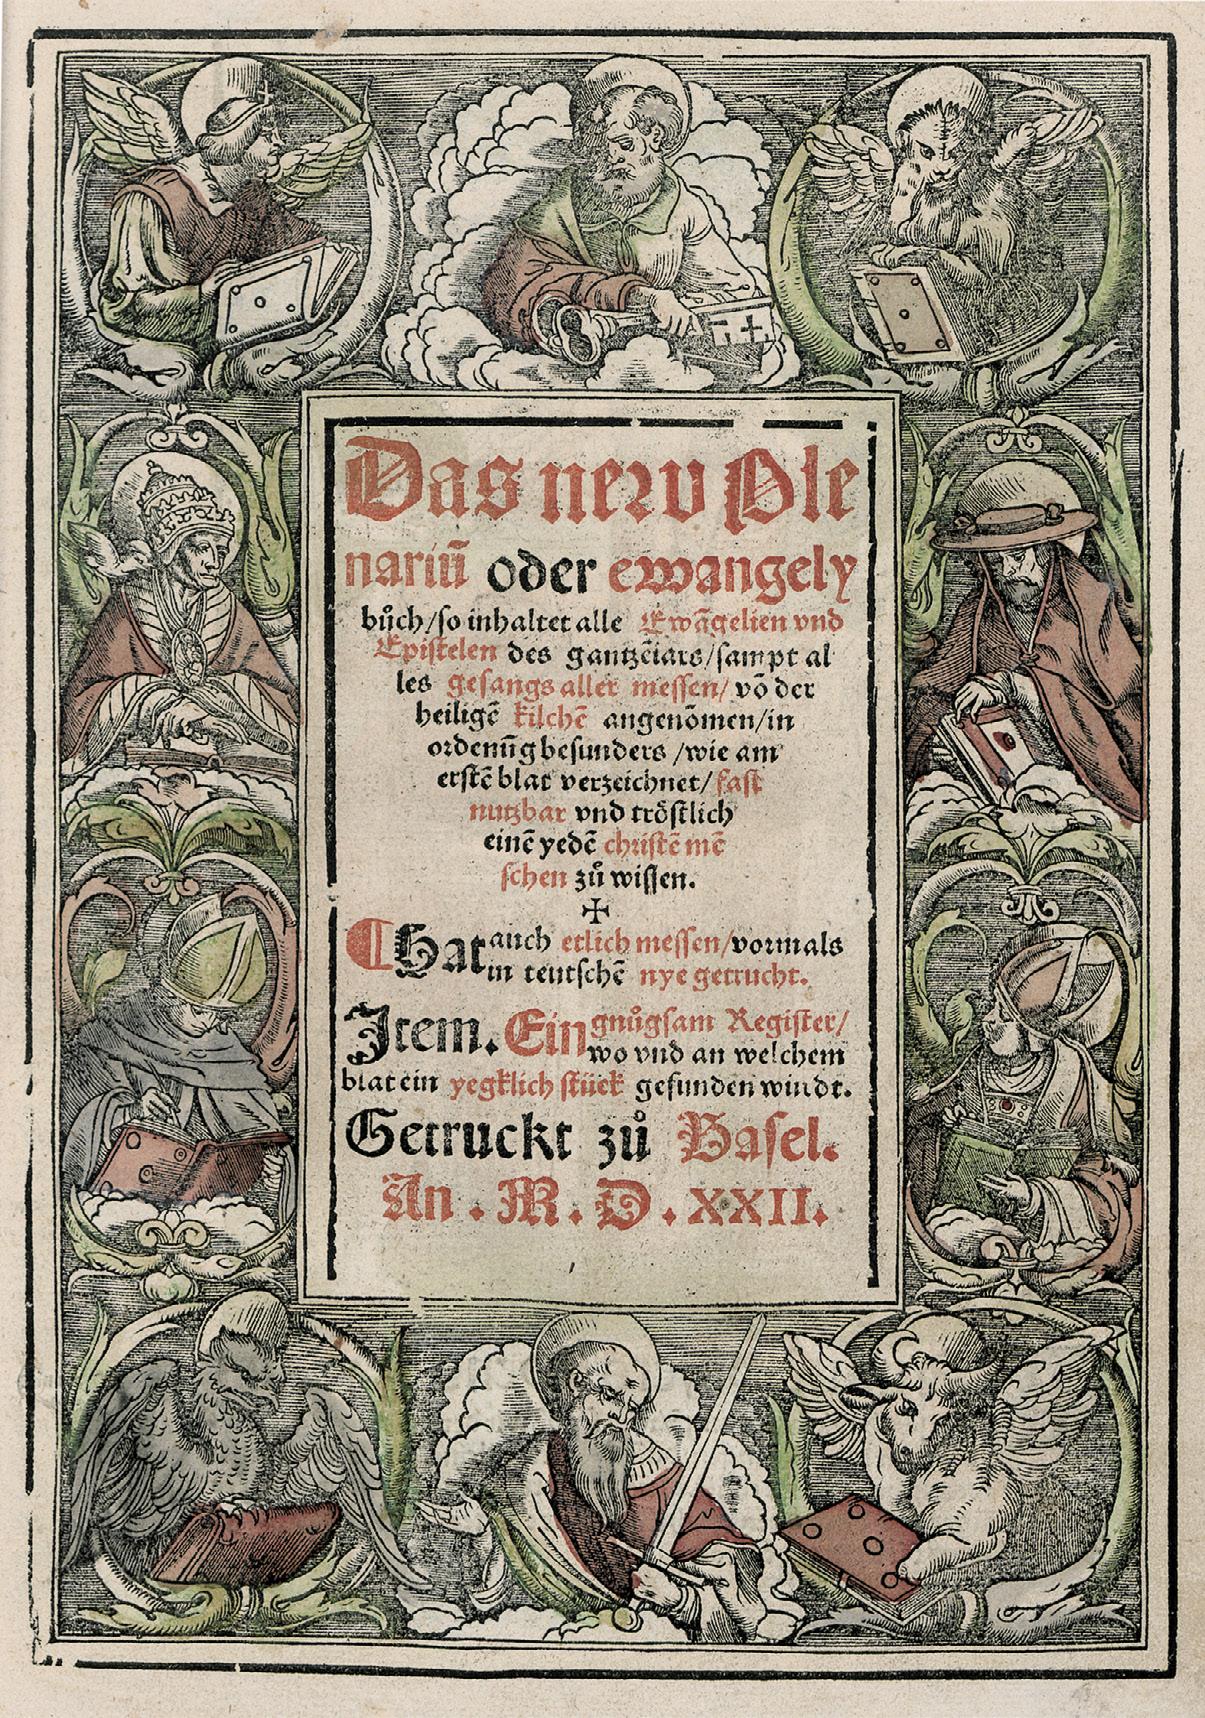 Das new Ple
nariū oder ewangely
bůch/so inhaltet alle Ewāgelien vnd
Epistelen des gantzēiars/sampt al
les gesangs aller messen/ vō der
heiligē kilchē angenōmen/in
ordenūg besunders /wie am
erstē blat verzeichnet/ fast
nutzbar vnd tröstlich
einē yedē christē mē
schen zů wissen.
Hat auch etlich messen/vormals
in teutschē nye getrucht.
Item. Ein gnůgsam Register/
wo vnd an welchem
blat ein yegklich stück gefunden würdt.
Getruckt zů Basel.
An . M . D . XXII.